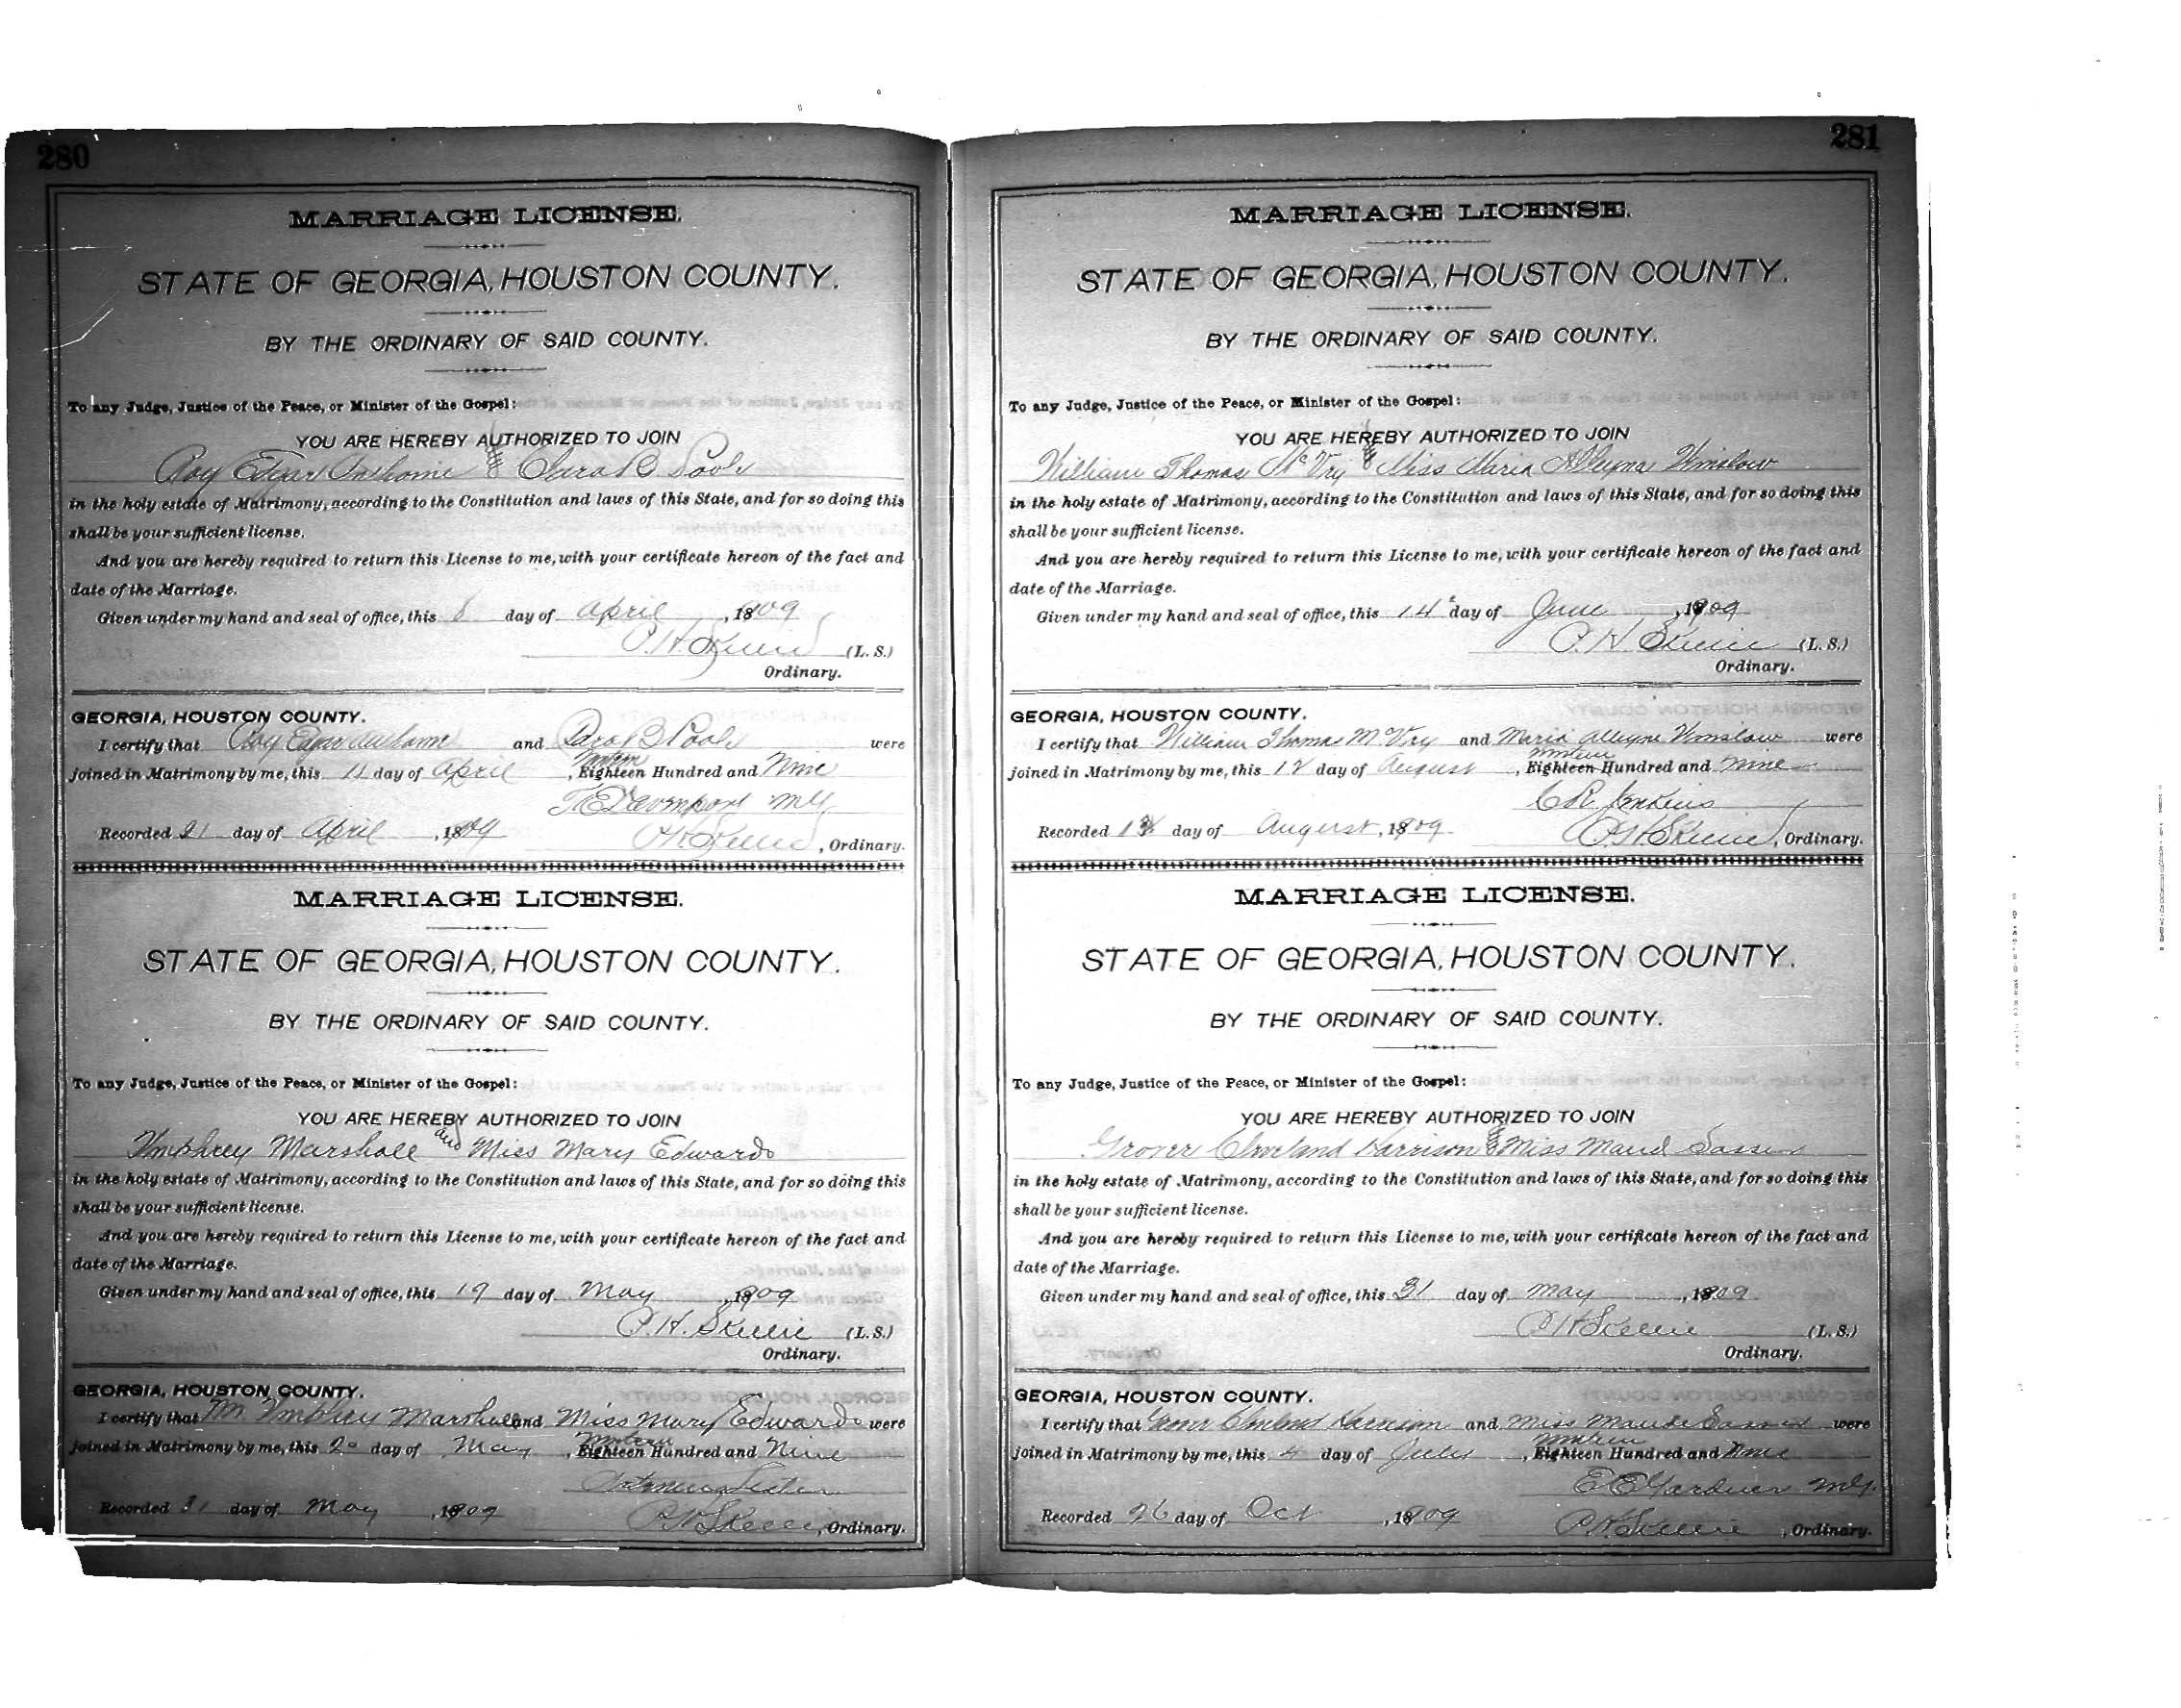 280
MARRIAGE LICENSE.
STATE OF GEORGIA, HOUSTON COUNTY.
BY THE ORDINARY OF SAID COUNTY.
To any Judge, Justice of the Peace, or Minister of the Gospel:
YOU ARE HEREBY AUTHORIZED TO JOIN
Roy Edgar & Sara B Poole
in the holy estate of Matrimony, according to the Constitution and laws of this State, and for so doing this
shall be your sufficient license.
And you are hereby required to return this License to me, with your certificate hereon of the fact and
date of the Marriage.
Given under my hand and seal of office, this 8 day of April, 1909
(L. S.)
Ordinary.
GEORGIA, HOUSTON COUNTY.
I certify that Roy Edgar and Sara B Poole were
joined in Matrimony by me, this 11 day of April, Eighteen Nineteen Hundred and Nine
Davenport MG
Recorded 21 day of April, 1909 , Ordinary.
MARRIAGE LICENSE.
STATE OF GEORGIA, HOUSTON COUNTY.
BY THE ORDINARY OF SAID COUNTY.
To any Judge, Justice of the Peace, or Minister of the Gospel:
YOU ARE HEREBY AUTHORIZED TO JOIN
Umphrey Marshall and Miss Mary Edwards
in the holy estate of Matrimony, according to the Constitution and laws of this State, and for so doing this
shall be your sufficient license.
And you are hereby required to return this License to me, with your certificate hereon of the fact and
date of the Marriage.
Given under my hand and seal of office, this 19 day of May, 1909
(L. S.)
Ordinary.
GEORGIA, HOUSTON COUNTY.
I certify that Mr. Umphrey Marshall and Miss Mary Edwards were
joined in Matrimony by me, this 20 day of May, Eighteen Nineteen Hundred and Nine
Recorded 31 day of May, 1909 , Ordinary.
281
MARRIAGE LICENSE.
STATE OF GEORGIA, HOUSTON COUNTY.
BY THE ORDINARY OF SAID COUNTY.
To any Judge, Justice of the Peace, or Minister of the Gospel:
YOU ARE HEREBY AUTHORIZED TO JOIN
William Thomas McVry & Miss Maria Alleyne Winslow
in the holy estate of Matrimony, according to the Constitution and laws of this State, and for so doing this
shall be your sufficient license.
And you are hereby required to return this License to me, with your certificate hereon of the fact and
date of the Marriage.
Given under my hand and seal of office, this 14 day of June, 1909
(L. S.)
Ordinary.
GEORGIA, HOUSTON COUNTY.
I certify that William Thomas McVry and Maria Alleyne Winslow were
joined in Matrimony by me, this 12 day of August, Eighteen Nineteen Hundred and Nine
C R Jenkins
Recorded day of August, 1909 , Ordinary.
MARRIAGE LICENSE.
STATE OF GEORGIA, HOUSTON COUNTY.
BY THE ORDINARY OF SAID COUNTY.
To any Judge, Justice of the Peace, or Minister of the Gospel:
YOU ARE HEREBY AUTHORIZED TO JOIN
Grover Cleveland Harrison & Miss Maud Sasser
in the holy estate of Matrimony, according to the Constitution and laws of this State, and for so doing this
shall be your sufficient license.
And you are hereby required to return this License to me, with your certificate hereon of the fact and
date of the Marriage.
Given under my hand and seal of office, this 31 day of May, 1909
(L. S.)
Ordinary.
GEORGIA, HOUSTON COUNTY.
I certify that Grover Cleveland Harrison and Miss Maude Sasser were
joined in Matrimony by me, this 4 day of July, Eighteen Nineteen Hundred and Nine
E E Gardner MG.
Recorded 26 day of Oct, 1909 , Ordinary.